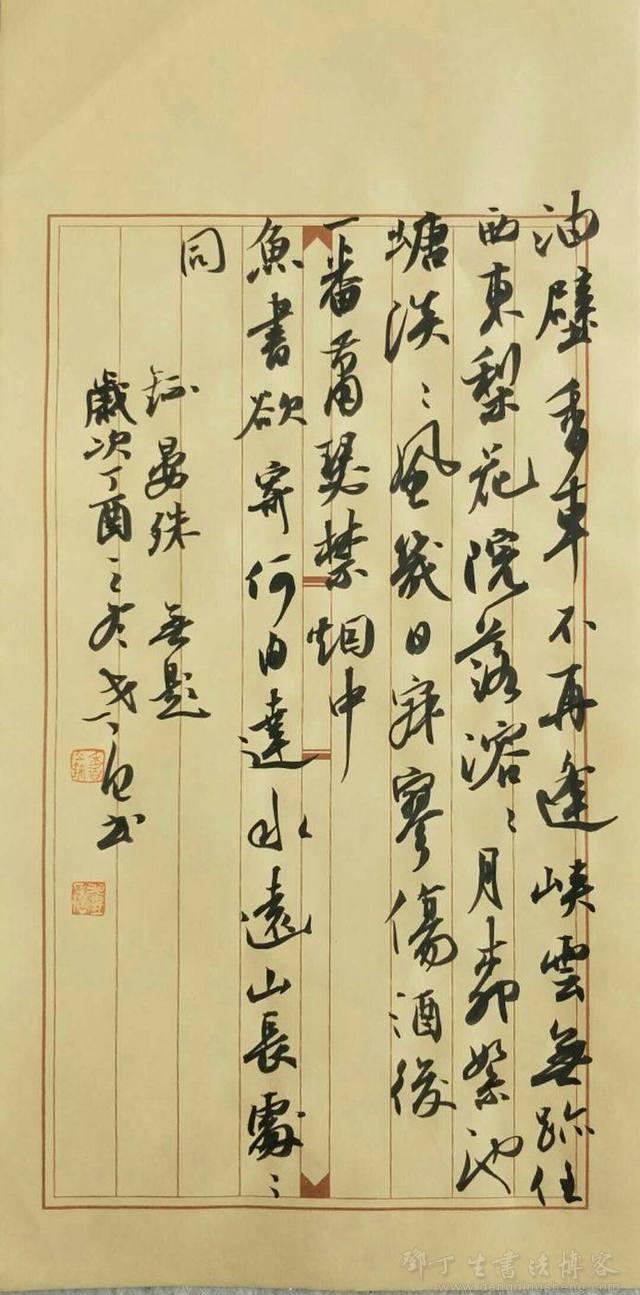 油壁香車不再逢峽雲無跡任
西東梨花院落溶〻月柳絮池
塘淡〻風幾日寂寥傷酒後
一番蕭瑟禁烟中
魚書欲寄何由達水遠山長處〻
同
錄晏殊無題
歲次丁酉之冬
書
鄧丁生書法博客
www.dengdingsheng.com